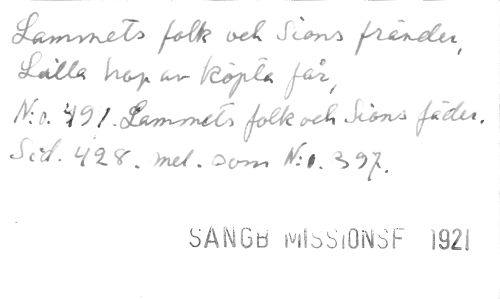 Lammets folk och Sions fränder,
Lilla hop av köpta får,
N:o. 491. Lammets folk och Sions fäder.
Sid. 428. mel. som N:o. 397.
SANGB MISSIONSF 1921